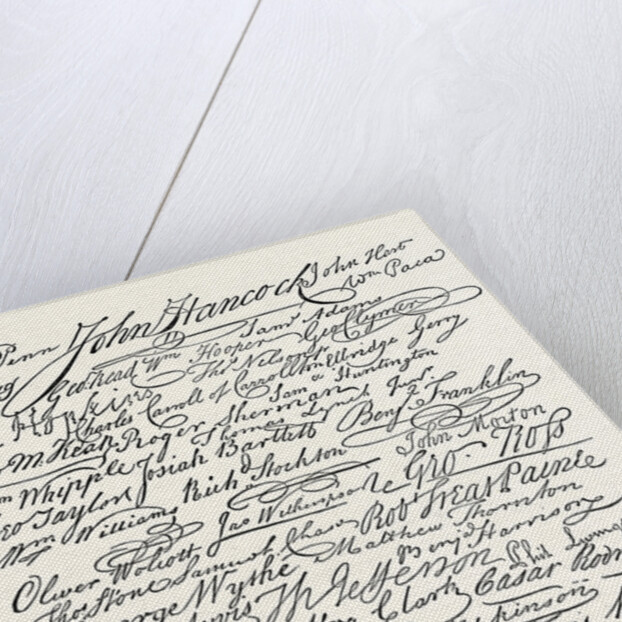 Penn John Hancock John Hart
Geo. Read Wm Hooper Saml Adams Wm Paca
Thos Nelson jr. Geo Clymer
Charles Carroll of Carrollton Elbridge Gerry
M. Kean Roger Sherman Saml Huntington
Whipple Josiah Bartlett Thomas Lynch Junr. Benj Franklin
Geo Taylor Richd Stockton John Morton
Wm Williams Jno Witherspoon Geo. Ross
Oliver Wolcott Samuel Chase Robt Treat Paine
Thos Stone Matthew Thornton
George Wythe Benj Harrison
Th Jefferson Phil. Livings
Lewis Clark Cæsar Rodn
kinson